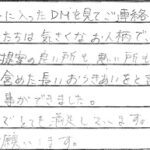 に入ったDMを見てご連絡
たちは気さくなお人柄で、
寝室の良い所も悪い所も
含めた長いおつきあいをとき
事ができました。
でとても満足しています。
願いします。